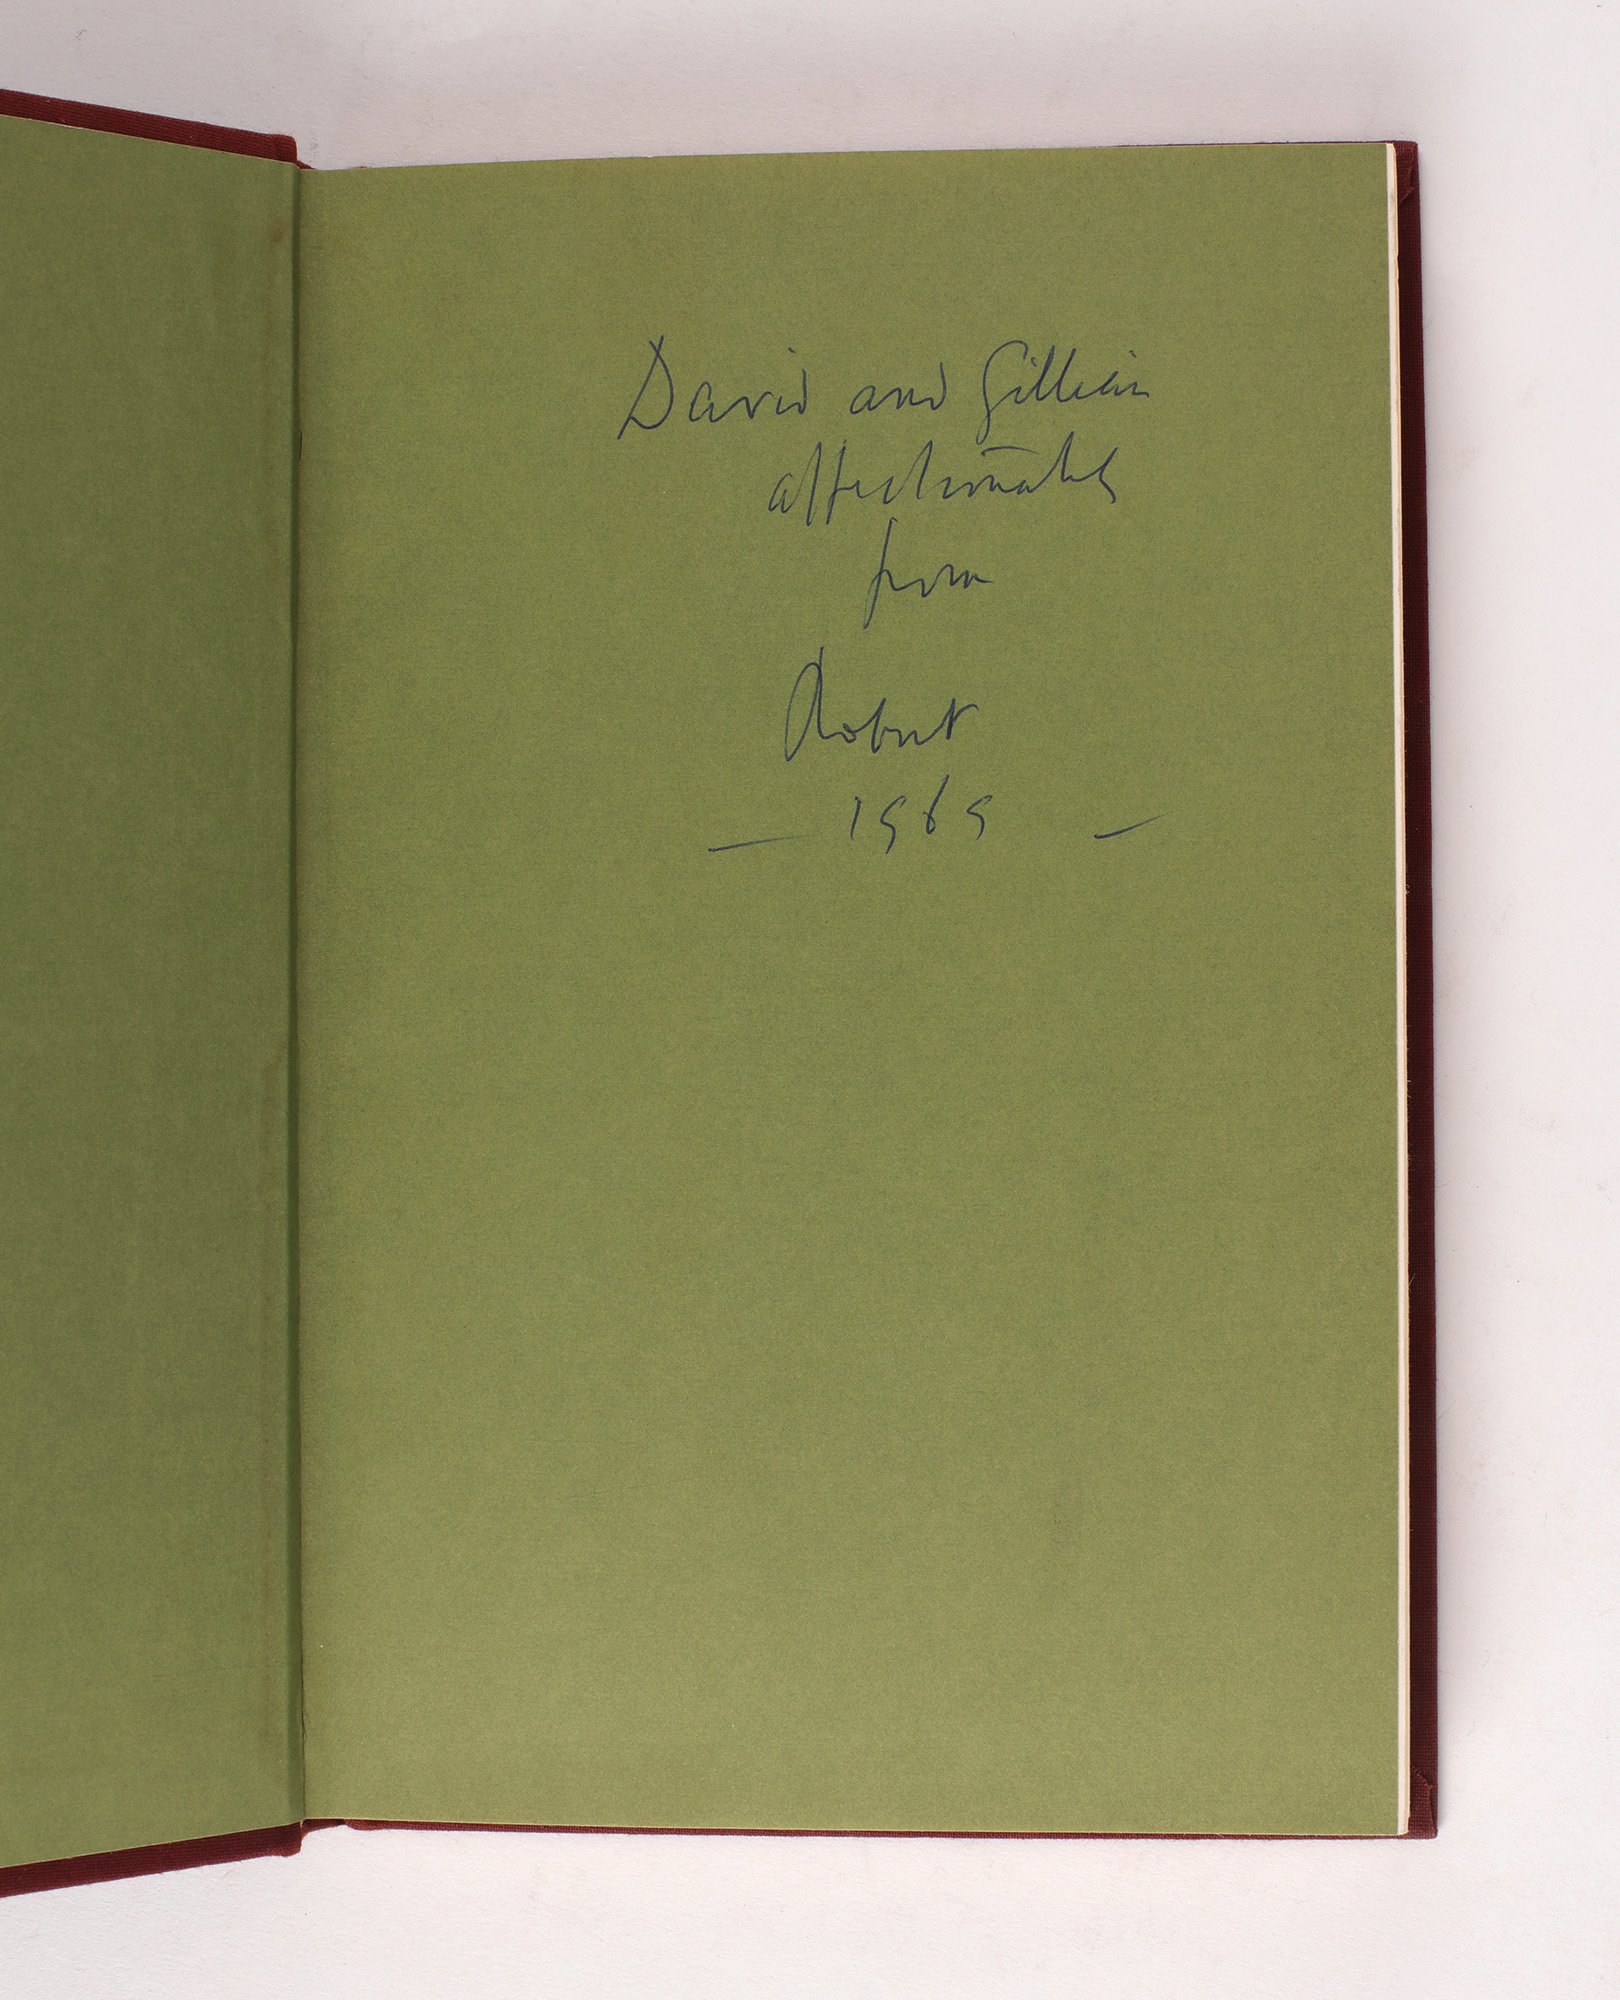 David and Gillian
affectionately
from
Robert
— 1969 —